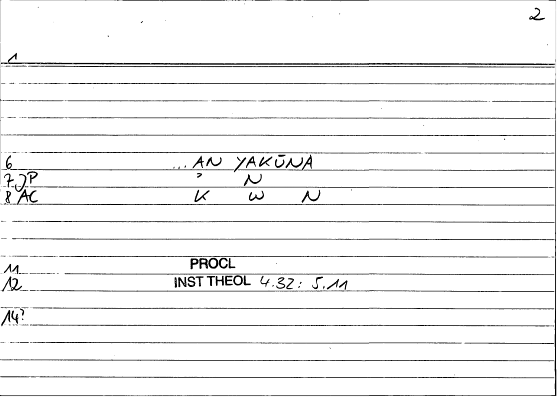 2
1
6 ... AN YAKŪNA
7 JP ' N
8 AC K W N
11 PROCL
12 INST THEOL 4.32: 5.11
14?